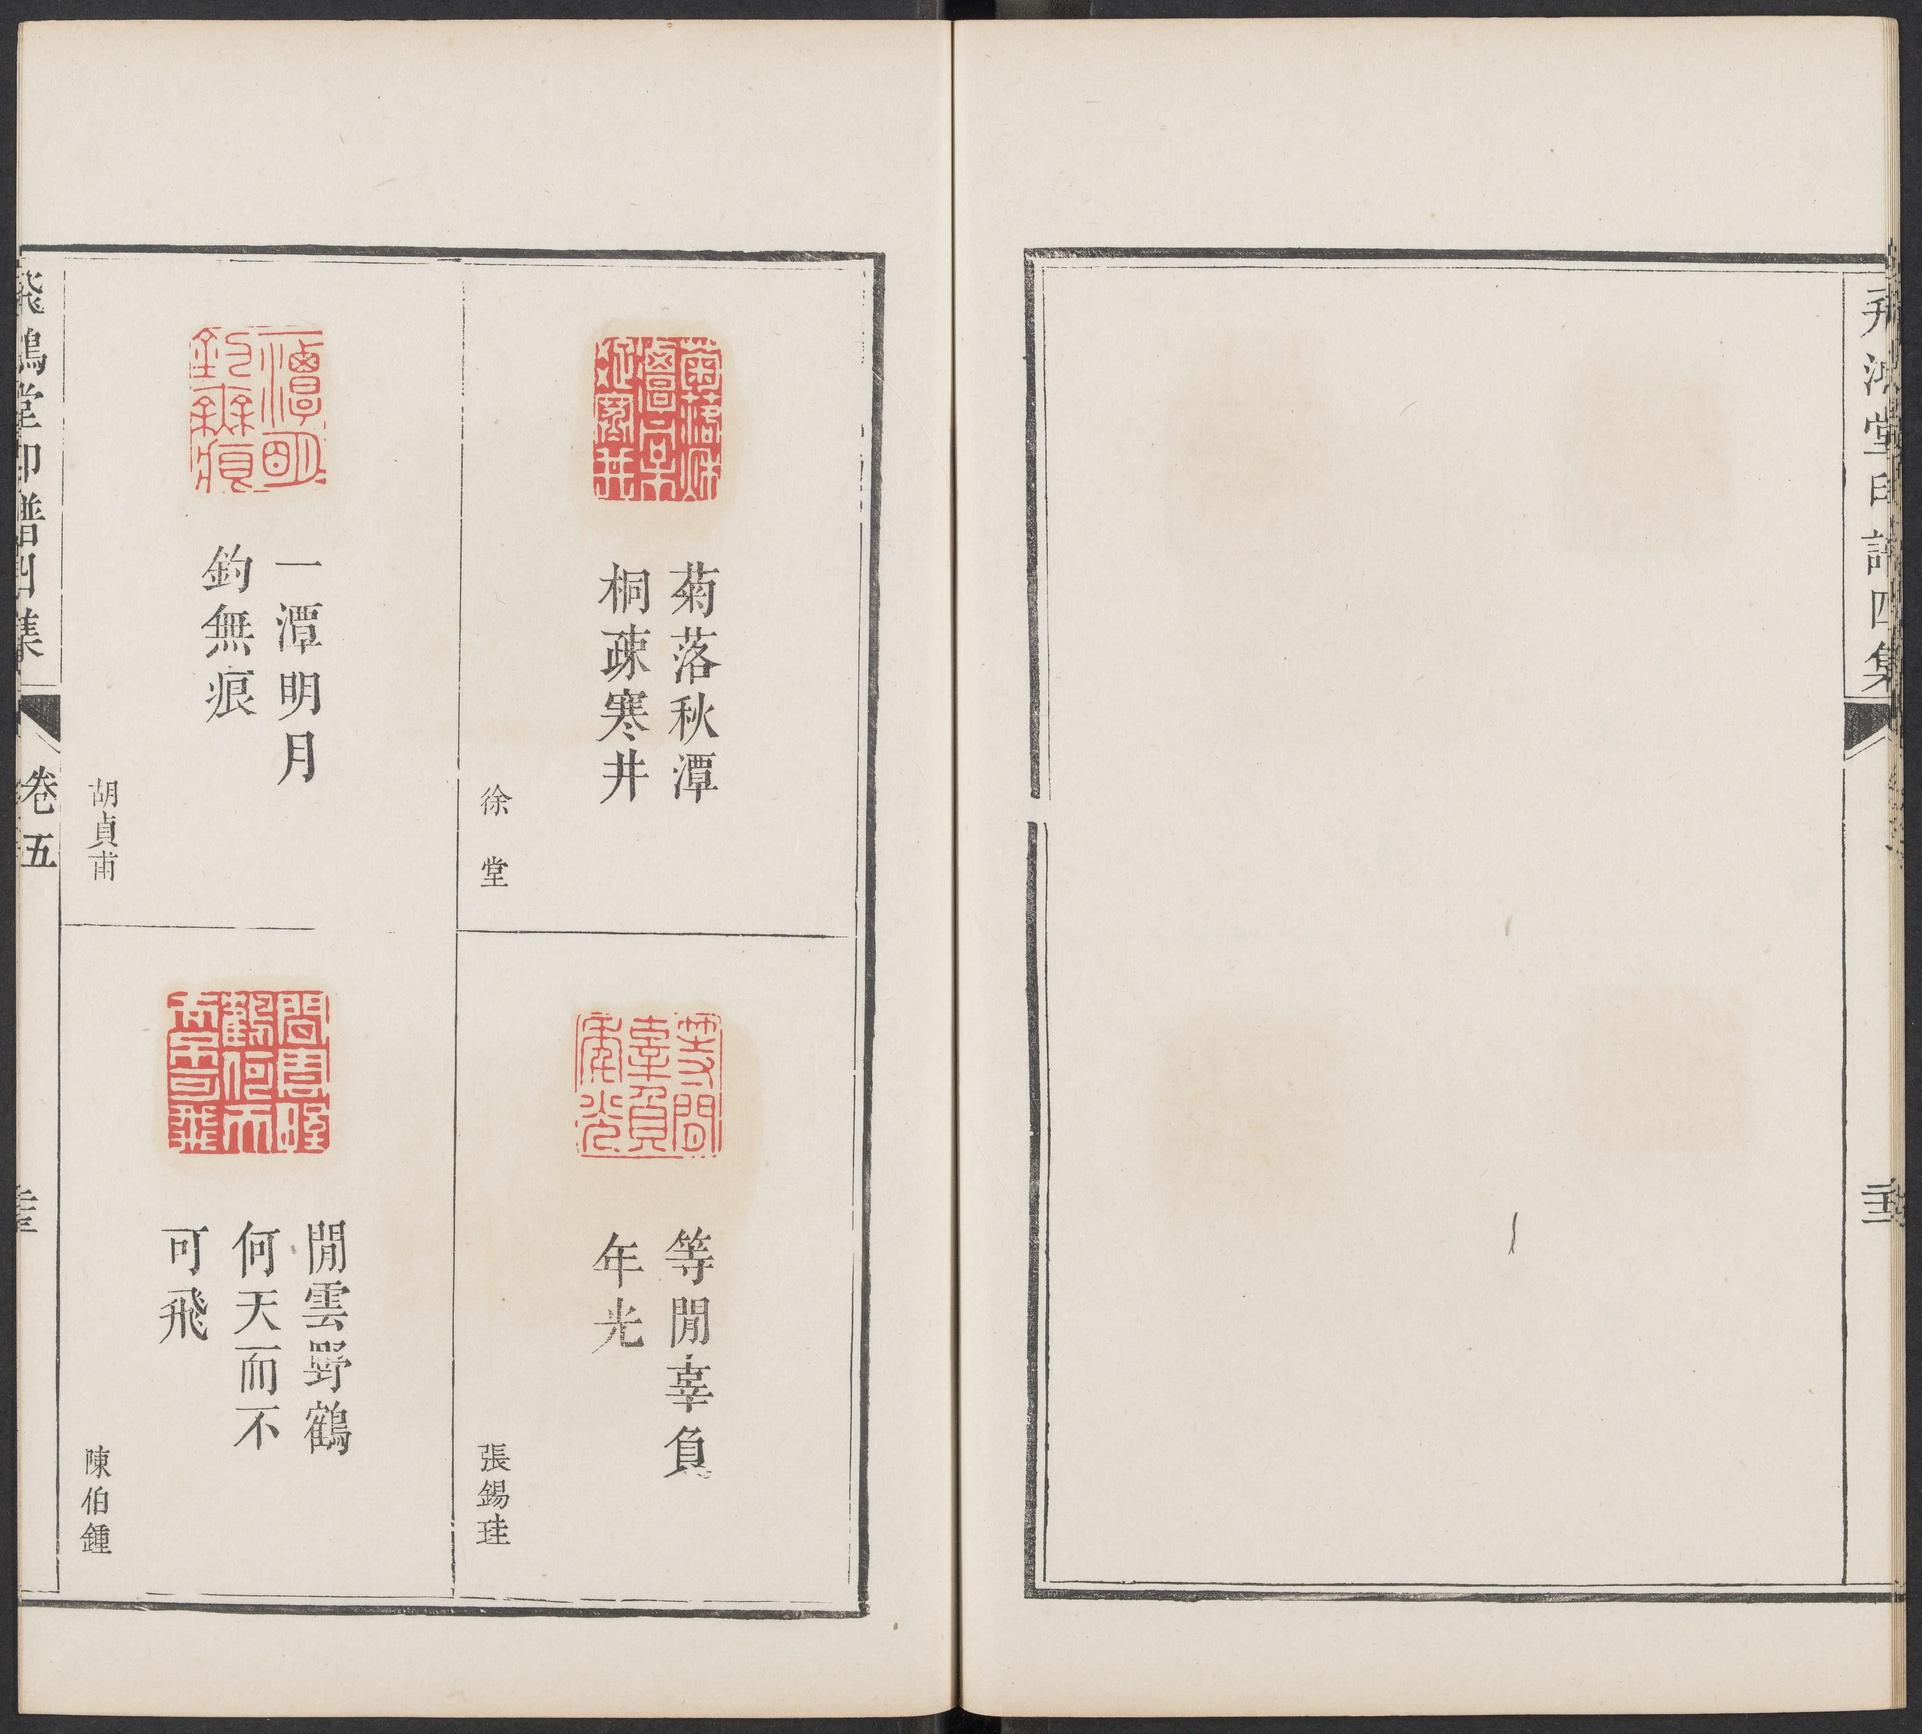 飛鴻堂印譜四集
菊落秋潭
桐疎寒井
徐堂
等閒辜負
年光
張錫珪
一潭明月
釣無痕
胡貞甫
閒雲野鶴
何天而不
可飛
陳伯鍾
飛鴻堂印譜四集
卷五